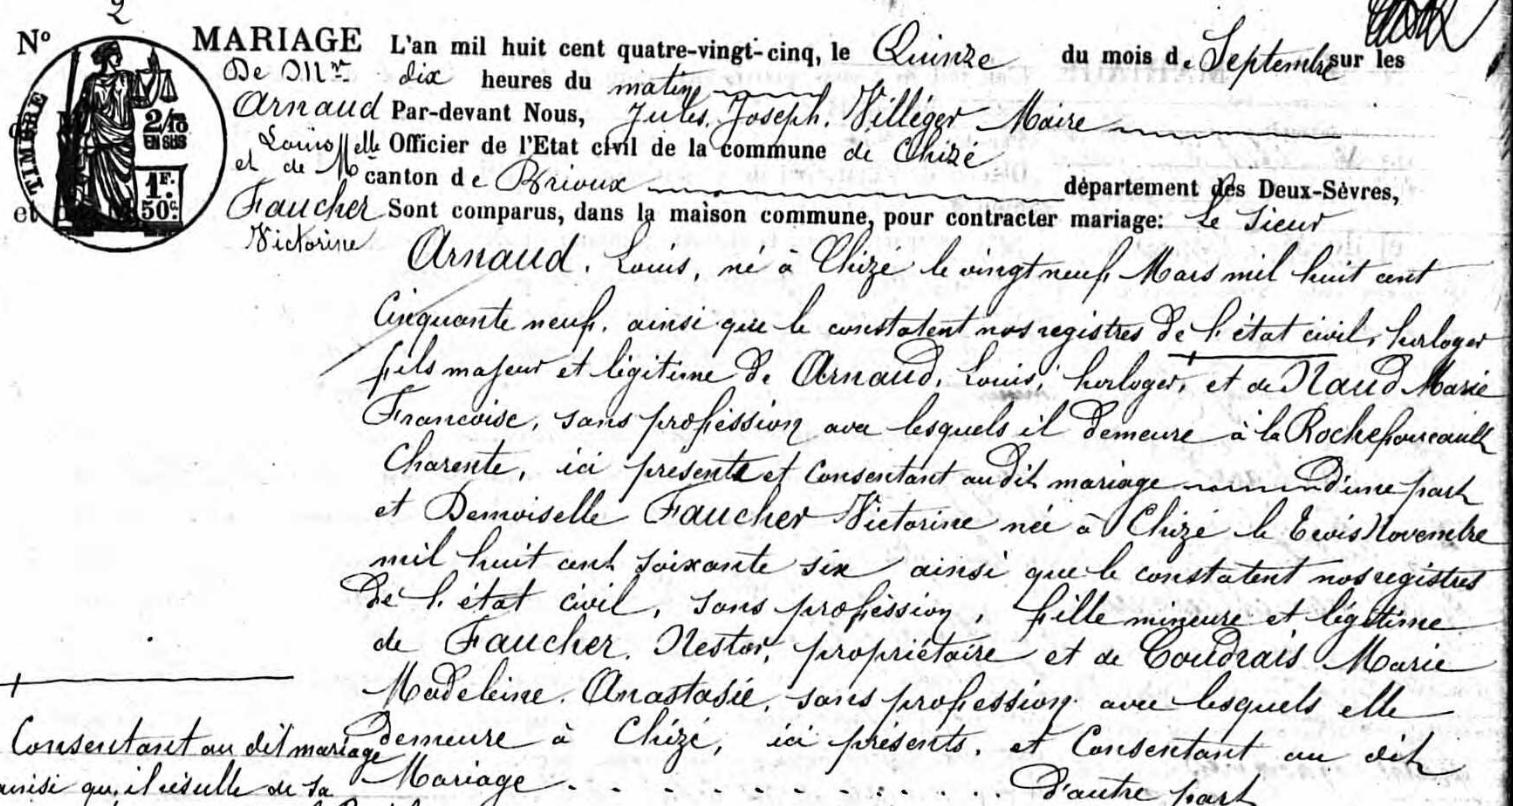 2
Nº
TIMBRE
2/10
EN SUS
1F.
50c.
et
MARIAGE
De Mr
Arnaud
Louis
et de Melle
Faucher
Victorine
L'an mil huit cent quatre-vingt-cinq, le Quinze du mois de Septembre sur les
dix heures du matin
Par-devant Nous, Jules, Joseph, Villéger Maire
Officier de l'Etat civil de la commune de Chizé
canton de Brioux département des Deux-Sèvres,
Sont comparus, dans la maison commune, pour contracter mariage: Le Sieur
Arnaud, Louis, né à Chizé le vingt neuf Mars mil huit cent
Cinquante neuf, ainsi que le constatent nos registres de l'état civil, horloger
fils majeur et légitime de Arnaud, Louis, horloger, et de Naud Marie
Francoise, sans profession avec lesquels il demeure à la Rochefoucault
Charente, ici présente et Consentant audit mariage d'une part
et Demoiselle Faucher Victorine née à Chizé le trois Novembre
mil huit cent soixante six ainsi que le constatent nos registres
de l'état civil, sans profession, fille mineure et légitime
de Faucher, Nestor, propriétaire et de Coudrais Marie
Madeleine Anastasie, sans profession avec lesquels elle
demeure à Chizé, ici présents, et Consentant au dit
Mariage d'autre part
Consentant au dit mariage
ainsi qu'il résulte de sa